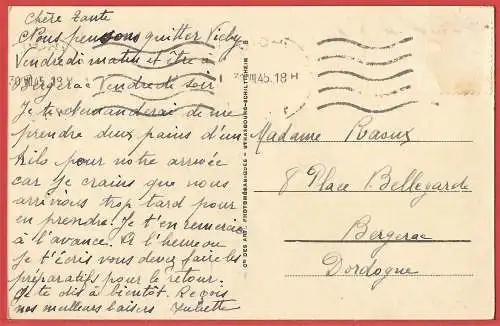 Chère Tante
Nous pensons quitter Vichy
Vendredi matin et être à
Bergerac Vendredi soir
Je te demanderai de me
prendre deux pains d'un
kilo pour notre arrivée
car je crains que nous
arrivons trop tard pour
en prendre. Je t'en remercie
à l'avance. A l'heure ou
je t'écris vous devez faire les
préparatifs pour le retour.
Je te dis à bientôt. Reçois
nos meilleurs baisers Juliette
45.18H
45.18H
Cie DES ARTS PHOTOMÉCANIQUES - STRASBOURG-SCHILTIGHEIM
Madame Raoux
8 Place Bellegarde
Bergerac
Dordogne